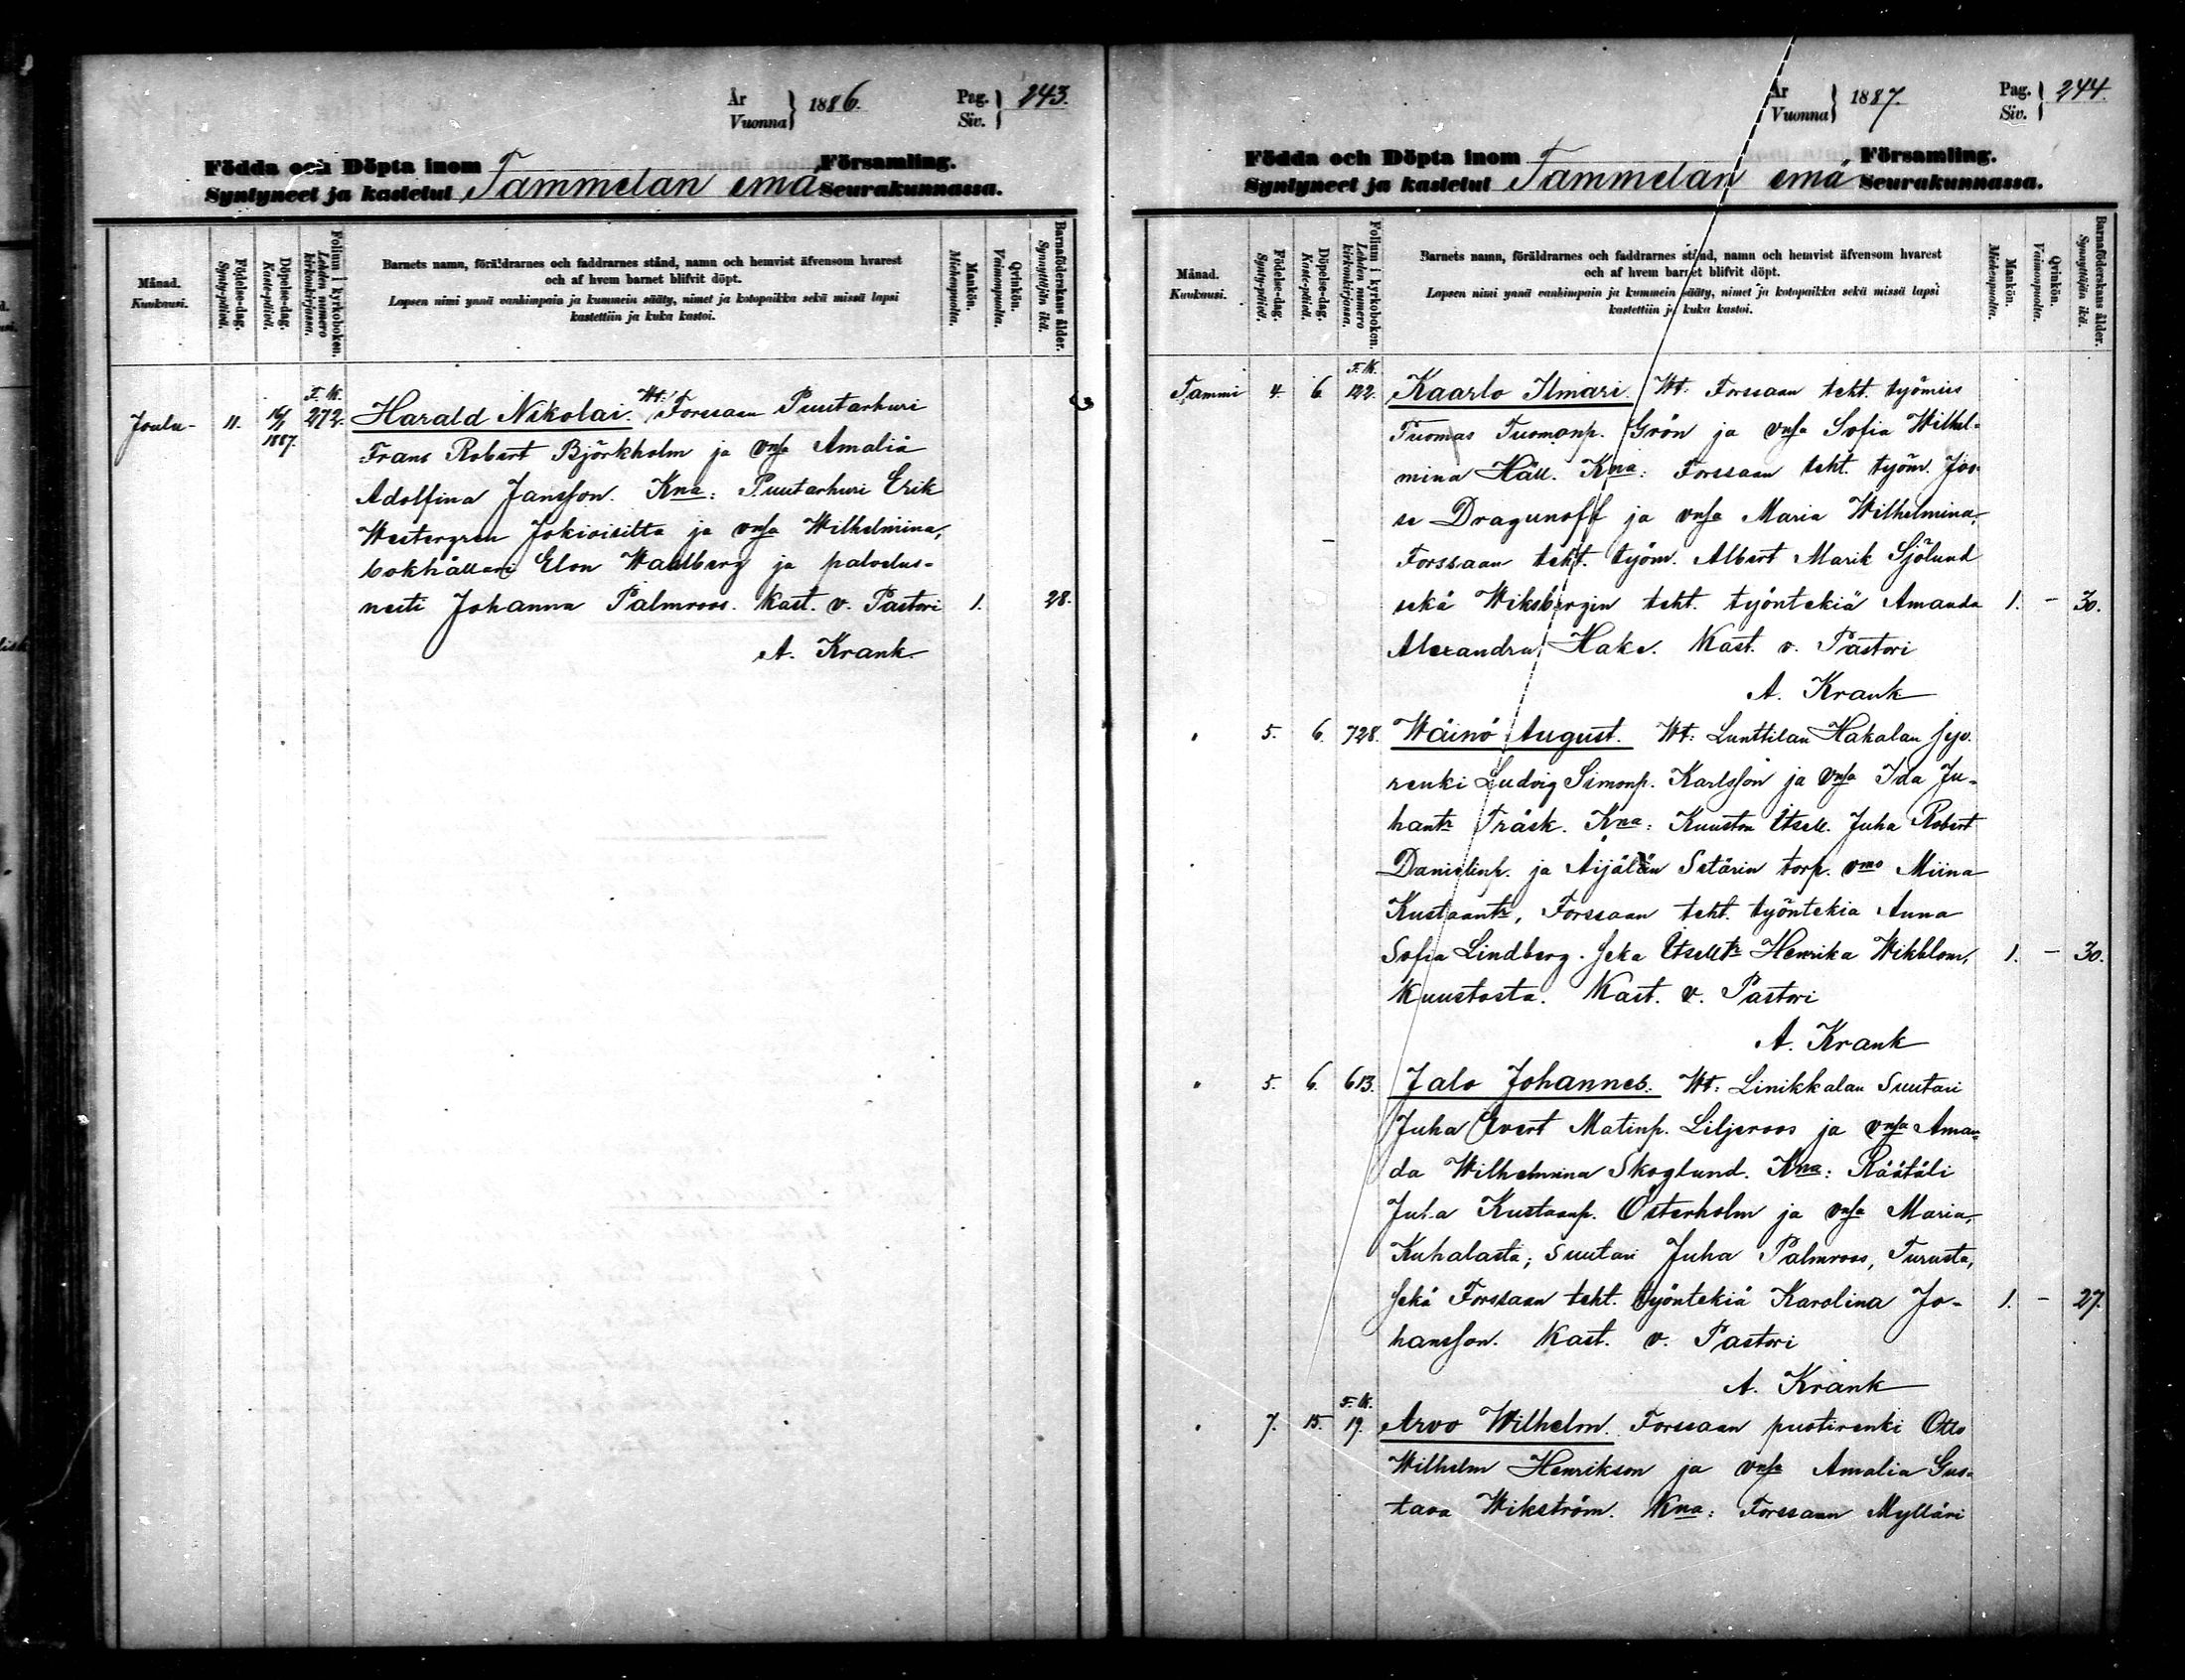 År
Vuonna } 1886. Pag.
Siv. } 243.
Födda och Döpta inom Församling.
Syntyneet ja kastetut Tammelan emä Seurakunnassa.
Månad.
Kuukausi.
Födelse-dag.
Synty-päivä.
Döpelse-dag.
Kaste-päivä.
Folium i kyrkoboken.
Lehden numero
kirkonkirjassa.
Barnets namn, föräldrarnes och faddrarnes stånd, namn och hemvist äfvensom hvarest
och af hvem barnet blifvit döpt.
Lapsen nimi ynnä vanhimpain ja kummein sääty, nimet ja kotopaikka sekä missä lapsi
kastettiin ja kuka kastoi.
Mankön.
Miehenpuolta.
Qvinkön.
Vaimonpuolta.
Barnaföderskans ålder.
Synnyttäjän ikä.
Joulu- 11. 16/1 1887. F. K. 272. Harald Nikolai. Wt: Forssan Puutarhuri
Frans Robert Björkholm ja vmsa Amalia
Adolfina Jansson. Kna: Puutarhuri Erik
Westergren Jokioisilta ja vmsa Wilhelmina,
bokhållari Elon Wahlberg ja palvelus-
neiti Johanna Palmroos. Kast. v. Pastori 1. 28.
A. Krank.
År
Vuonna } 1887. Pag.
Siv. } 244.
Födda och Döpta inom Församling.
Syntyneet ja kastetut Tammelan emä Seurakunnassa.
Månad.
Kuukausi.
Födelse-dag.
Synty-päivä.
Döpelse-dag.
Kaste-päivä.
Folium i kyrkobokon.
Lehden numero
kirkonkirjassa.
Barnets namn, föräldrarnes och faddrarnes stånd, namn och hemvist äfvensom hvarest
och af hvem barnet blifvit döpt.
Lapsen nimi ynnä vanhimpain ja kummein sääty, nimet ja kotopaikka sekä missä lapsi
kastettiin ja kuka kastoi.
Mankön.
Miehenpuolta.
Qvinkön.
Vaimonpuolta.
Barnaföderskans ålder.
Synnyttäjän ikä.
Tammi 4. 6. F. K. 122. Kaarlo Ilmari. Wt: Forssaan teht. työmies
Tuomas Tuomanp. Grön ja vmsa Sofia Wilhel-
mina Häll. Kna: Forssaan teht. työm. Jos-
se Dragunoff ja vmsa Maria Wilhelmina,
Forssaan teht. työm. Albert Marik Sjölund
sekä Wiksbergin teht. työntekiä Amanda 1. - 30.
Alexandra Hake. Kast. v. Pastori
A. Krank
" 5. 6. 728. Wäinö August. Wt: Lunttilan Hakalan
renki Ludvig Simonp. Karlsson ja vmsa Ida Ju-
hantr Träsk. Kna: Kuuston Itsell. Juha Robert
Danielinp. ja Äijälän Setärin torp. vmo Miina
Kustaantr, Forssaan teht. työntekiä Anna
Sofia Lindberg. Seka Itselltr Henrika Wikblom, 1. - 30.
Kuustosta. Kast. v. Pastori
A. Krank
" 5. 6. 613. Jalo Johannes. Wt: Linikkalan Suutari
Juha Evert Matinp. Liljeroos ja vmsa Aman-
da Wilhelmina Skoglund. Kna: Räätäli
Juha Kustaanp. Österholm ja vmsa Maria,
Kuhalasta; Suutari Juha Palmroos, Turusta,
Sekä Forssaan teht. työntekiä Karolina Jo- 1. - 27.
hansson. Kast. v. Pastori
A. Krank
" 7. 15. F. K. 19. Arvo Wilhelm. Forssaan pustirenki Otto
Wilhelm Henrikson ja vmsa Amalia Gus-
tava Wikström. Kna: Forssaan Mylläri